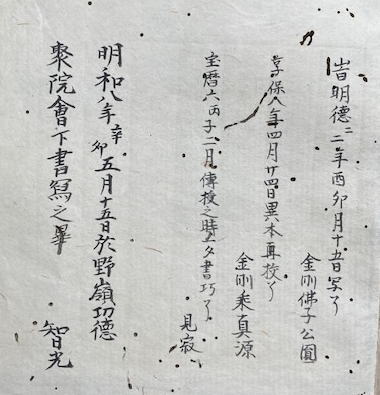 旹明德二二年酉卯月十五日写了
金剛佛子公圓
享保八年四月廿四日異本再挍了
金剛乘真源
宝暦六丙子二月傳授之時一夕書巧了
見寂
明和八年辛卯五月十五日於野嶺功德
聚院會下書寫之畢
智光